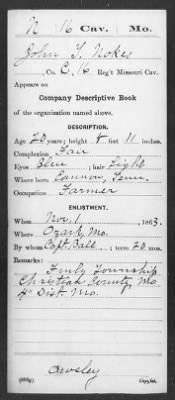 N 16 Cav. Mo.
John T. Nokes
, Co. E, 16 Reg't Missouri Cav.
Appears on
Company Descriptive Book
of the organization named above.
DESCRIPTION.
Age 20 years; height 5 feet 11 inches.
Complexion Fair
Eyes Blue ; hair Light
Where born Cannon, Tenn.
Occupation Farmer
ENLISTMENT.
When Nov. 1 , 1863.
Where Ozark, Mo.
By whom Capt. Ball ; term 20 mos.
Remarks: Finly Township
Christian County Mo
4" Dist. Mo.
Owsley
Copyist.